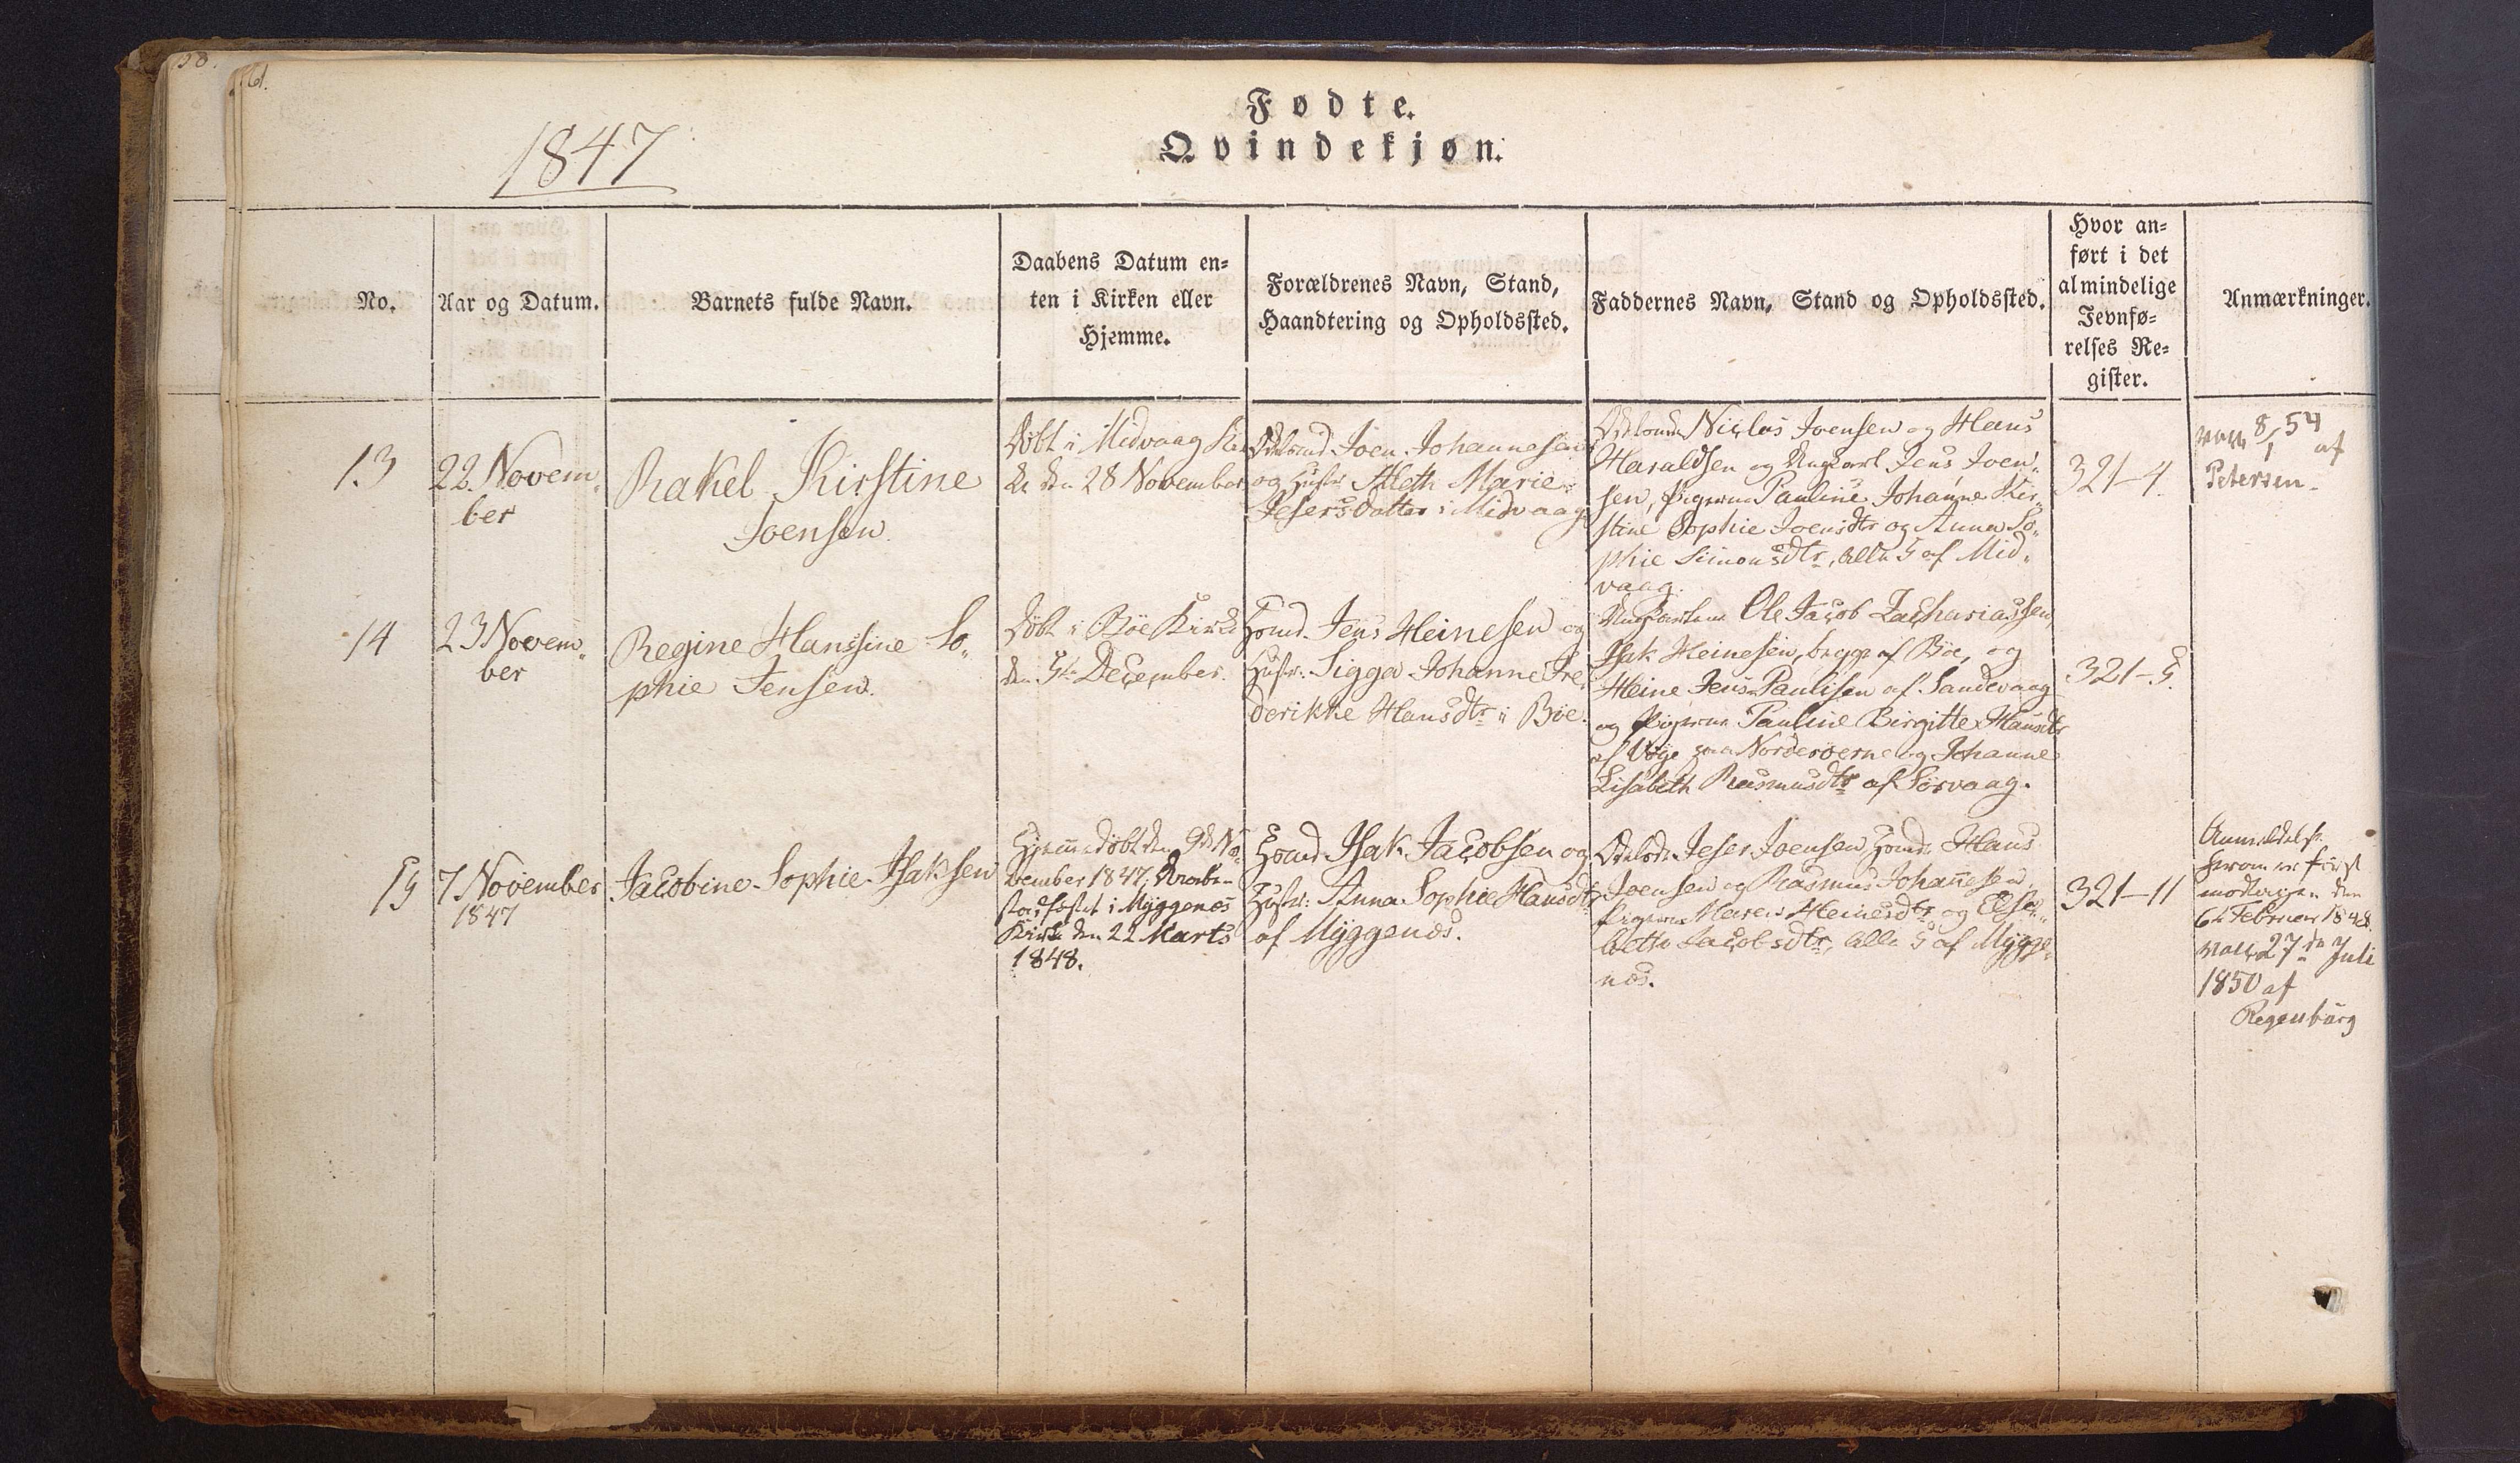 61.
1847
Fødte.
Qvindekjøn.
No.
Aar og Datum.
Barnets fulde Navn.
Daabens Datum en=
ten i Kirken eller
Hjemme.
Forældrenes Navn, Stand,
Haandtering og Opholdssted.
Faddernes Navn, Stand og Opholdssted.
Hvor an=
ført i det
almindelige
Jevnfø=
relses Re=
gister.
Anmærkninger.
13
22 Novem,
ber
Rakel Kirstine
Joensen.
Døbt i Midvaag Kir
den 28 November
Joen Johannesen
og Hustr. Aleth Marie
Jesersdatter i Midvaag
Niclas Joensen og Hans
Haraldsen og Ungkarl Jens Joen,
sen, Pigerne Pauline Johanne Kir,
stine Sophie Joensdtr og Anna So,
phie Simonsdtr, alle 5 af Mid,
vaag.
321-4.
vacc 8/1 54 af
Petersen
14
23 Novem,
ber
Regine Hanssine So,
phie Jensen.
Døbt i Böe Kirke
den 5te December.
Huusmd. Jens Heinesen og
Hustr. Sigga Johanne Fre,
derikke Hansdtr i Böe.
Ungkarlene Ole Jacob Zachariassen,
Isak Heinesen, begge af Böe, og
Heine Jens Paulisen af Sandevaag
og Pigerne Pauline Birgitte Hansdtr
af Vige paa Norderöerne og Johanne
Lisabeth Rasmusdtr af Sörvaag.
321-5.
15
7 November
1847
Jacobine Sophie Isaksen
Hjemmedøbt den 9de No,
vember 1847,
stadfæstet i Myggenæs
Kirke den 22 Marts
1848.
Huusmd Isak Jacobsen og
Hustr: Anna Sophie Hansdtr
af Myggenæs.
Jeser Joensen, Huusmd Hans
Joensen og Rasmus Johannesen,
Pigerne Maren Heinesdtr og Elsa,
beth Jacobsdtr, alle 5 af Mygge,
næs.
321-11
Anmeldelse
herom er først
modtagen den
6te Februar 1848.
vacc. 27de Juli
1850 af
Regenburg